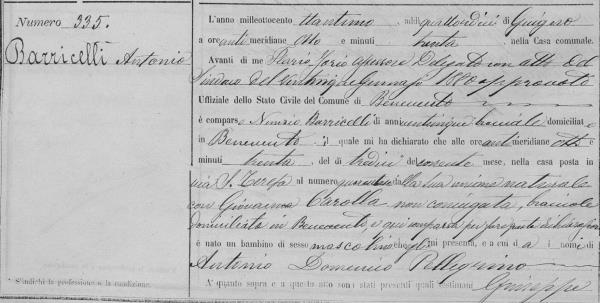 Numero 335.
Barricelli Antonio
L'anno milleottocento ottantuno, addì quattordici di Giugno
a ore antimeridiane otto e minuti trenta, nella Casa comunale.
Avanti di me Pierro Jorio assessore Delegato con atto del
Sindaco del ventinque Gennajo 1880 approvato
Uffiziale dello Stato Civile del Comune di Benevento
è comparso Nunzio Barricelli di anni ventinque bracciale domiciliato
in Benevento il quale mi ha dichiarato che alle ore antimeridiane otto e
minuti trenta, del dì tredici del corrente mese, nella casa posta in
via S. Teresa al numero dalla sua unione naturale
con Giovanna Carolla non coniugata, bracciale
domiciliata in Benevento, e qui comparsa per far questa dichiarazione
è nato un bambino di sesso mascolino che egli mi presenta, e a cui dà i nomi di
Antonio Domenico Pellegrino Giuseppe
A quanto sopra e a questo atto sono stati presenti quali testimoni
* S'indichi la professione o la condizione.